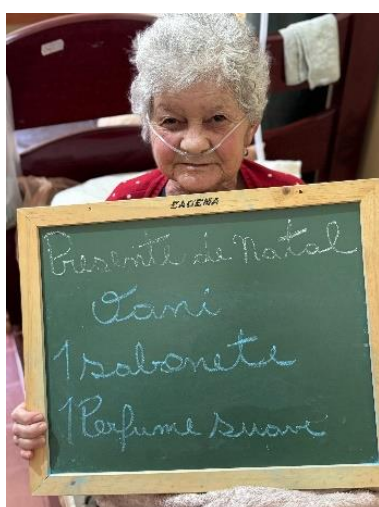 CADEMA
Presente de Natal
Vani
1 sabonete
1 Perfume suave